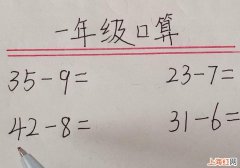 一年级口算
35-9= 23-7=
42-8= 31-6=
上海红网